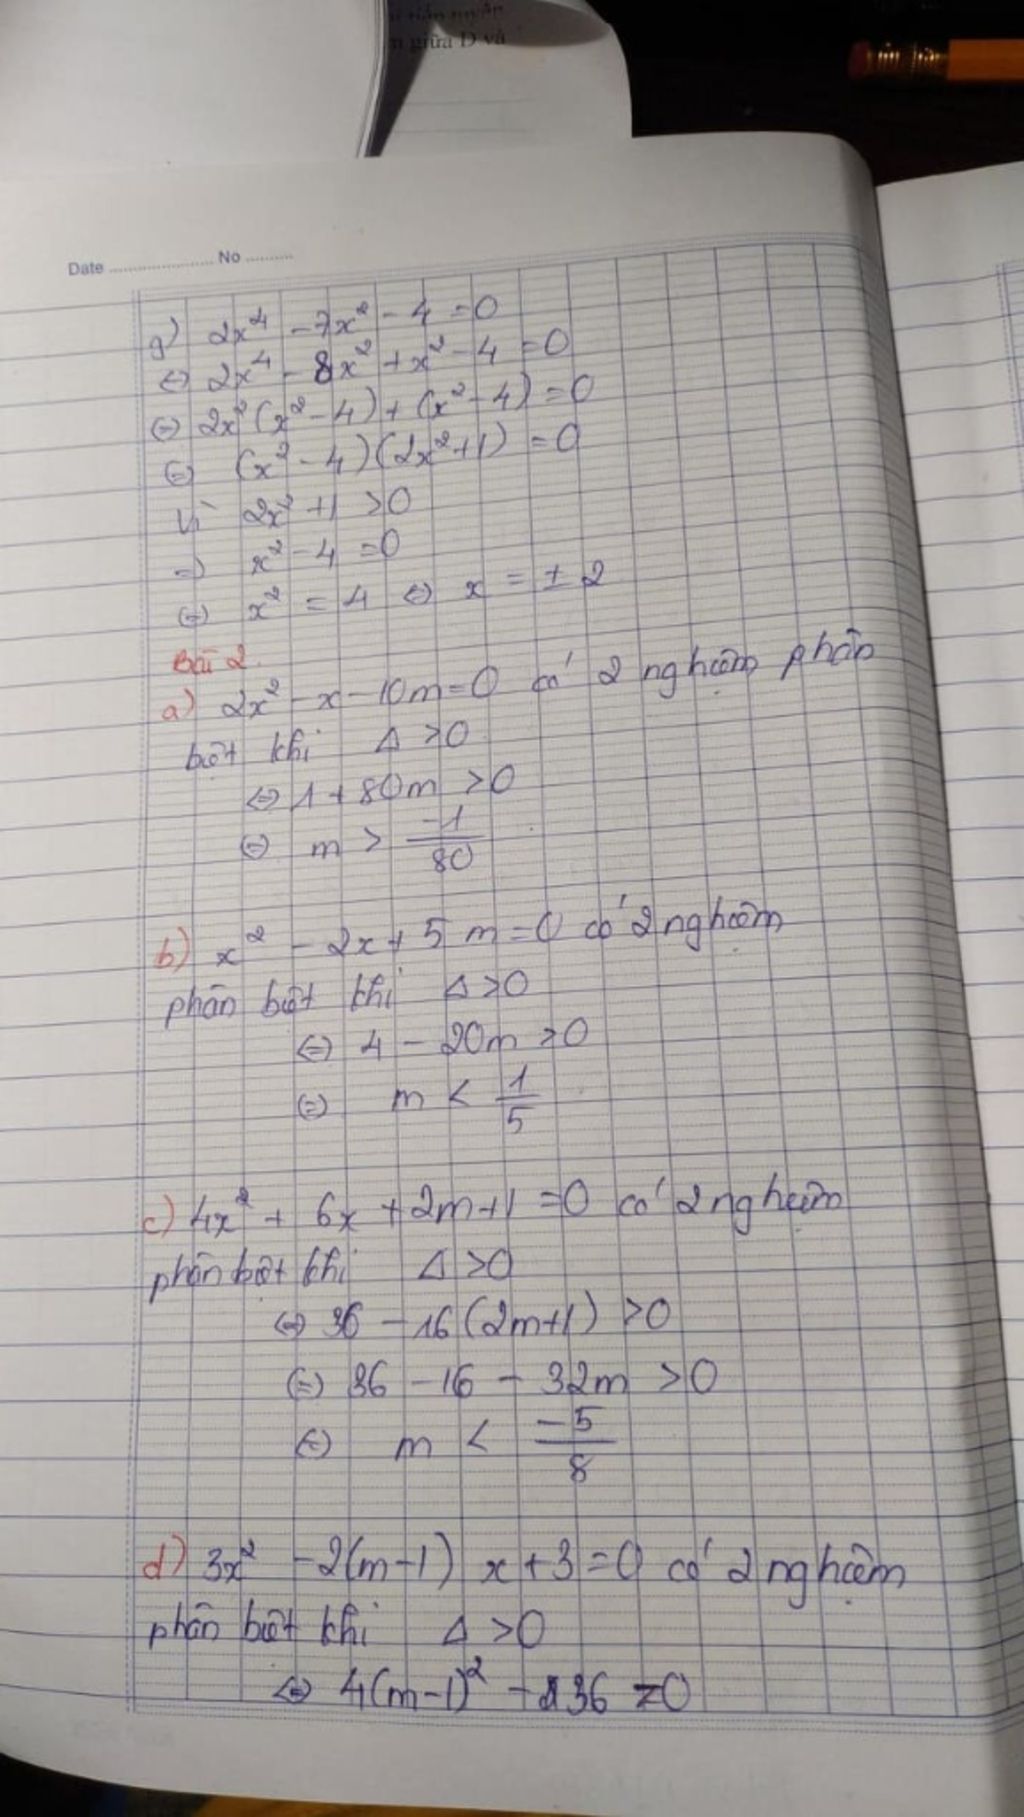 n giữa D và
Date No
g) 2x⁴ - 7x² - 4 = 0
⇔ 2x⁴ - 8x² + x² - 4 = 0
⇔ 2x²(x² - 4) + (x² - 4) = 0
⇔ (x² - 4)(2x² + 1) = 0
Vì 2x² + 1 > 0
⇒ x² - 4 = 0
⇔ x² = 4 ⇔ x = ± 2
Bài 2.
a) 2x² - x - 10m = 0 có 2 nghiệm phân
biệt khi Δ > 0
⇔ 1 + 80m > 0
⇔ m > -1/80
b) x² - 2x + 5m = 0 có 2 nghiệm
phân biệt khi Δ > 0
⇔ 4 - 20m > 0
⇔ m < 1/5
c) 4x² + 6x + 2m + 1 = 0 có 2 nghiệm
phân biệt khi Δ > 0
⇔ 36 - 16(2m+1) > 0
⇔ 36 - 16 - 32m > 0
⇔ m < -5/8
d) 3x² - 2(m-1)x + 3 = 0 có 2 nghiệm
phân biệt khi Δ > 0
⇔ 4(m-1)² - 36 > 0